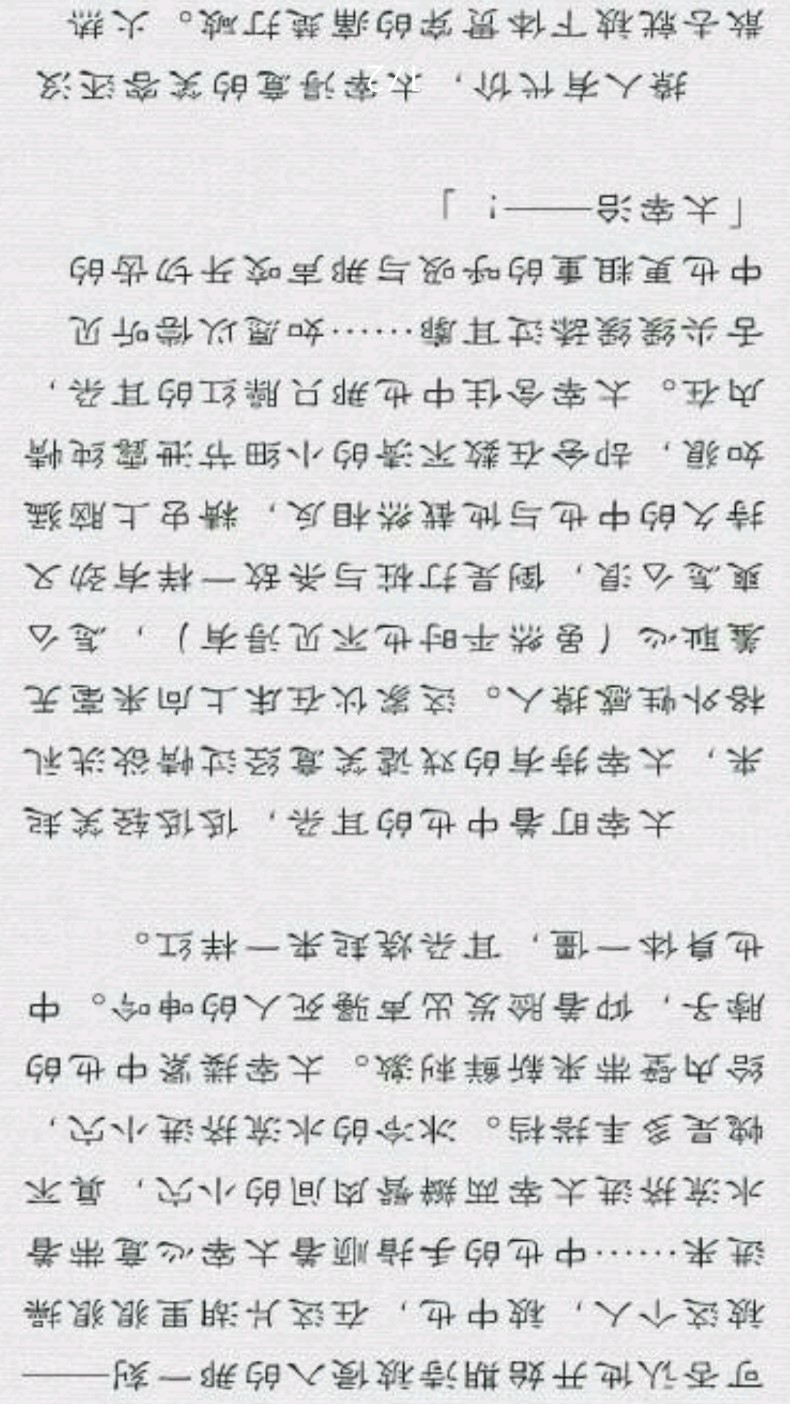 可否认他开始期待被侵入的那一刻——
被这个人，被中也，在这片湖里狠狠操
进来……中也的手指顺着太宰心意带着
水流挤进太宰两瓣臀肉间的小穴，真不
愧是多年搭档。冰冷的水流挤进小穴，
给内壁带来新鲜刺激。太宰搂紧中也的
脖子，仰着脸发出声骚死人的呻吟。中
也身体一僵，耳朵烧起来一样红。
太宰盯着中也的耳朵，低低轻笑起
来，太宰特有的戏谑笑意经过情欲洗礼
格外性感撩人。这家伙在床上向来毫无
羞耻心（虽然平时也不见得有），怎么
爽怎么浪，倒是打桩与杀敌一样有劲又
持久的中也与他截然相反，精虫上脑猛
如狼，却会在数不清的小细节泄露纯情
内在。太宰含住中也那只臊红的耳朵，
舌尖缓缓舔过耳廓……如愿以偿听见
中也更粗重的呼吸与那声咬牙切齿的
「太宰治——！」
撩人有代价，太宰得意的笑容还没
散去就被下体贯穿的痛楚打碱。火热